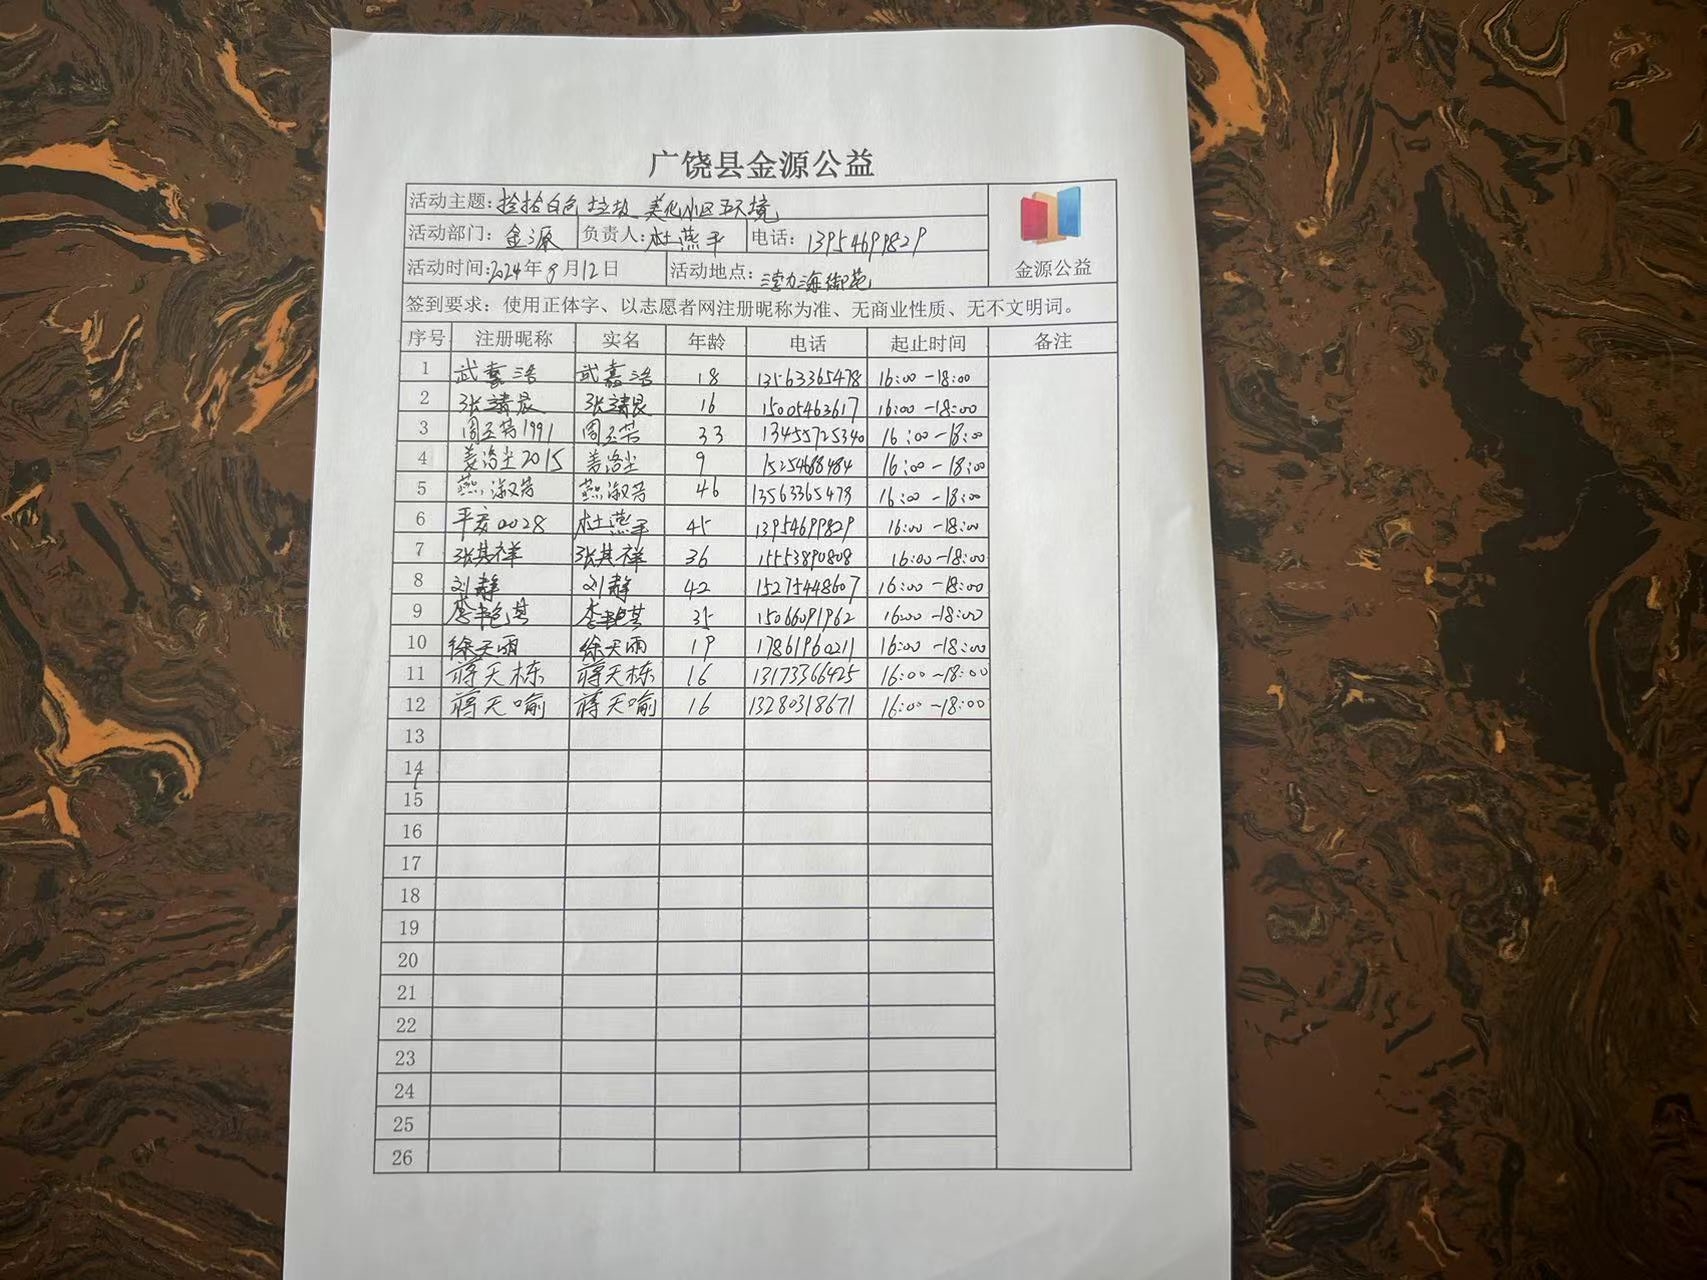 广饶县金源公益
活动主题:捡拾白色垃圾 美化小区环境
活动部门: 金源 负责人:杜燕平 电话: 13954699829
金源公益
活动时间:2024年9月12日 活动地点: 海御苑
签到要求: 使用正体字、以志愿者网注册昵称为准、无商业性质、无不文明词。
序号 注册昵称 实名 年龄 电话 起止时间 备注
1 武嘉浩 武嘉浩 18 13563365478 16:00-18:00
2 张靖晨 张靖晨 16 15005463617 16:00-18:00
3 周玉芳1991 周玉芳 33 13455725340 16:00-18:00
4 姜洛尘2015 姜洛尘 9 15254688484 16:00-18:00
5 燕淑芳 燕淑芳 46 13563365478 16:00-18:00
6 平安0028 杜燕平 45 13954699829 16:00-18:00
7 张其祥 张其祥 36 15553890808 16:00-18:00
8 刘静 刘静 42 15275448607 16:00-18:00
9 李艳其 李艳其 35 15066091962 16:00-18:00
10 徐天雨 徐天雨 19 17861960211 16:00-18:00
11 蒋天栋 蒋天栋 16 13173366425 16:00-18:00
12 蒋天喻 蒋天喻 16 13280318671 16:00-18:00
13
14
15
16
17
18
19
20
21
22
23
24
25
26